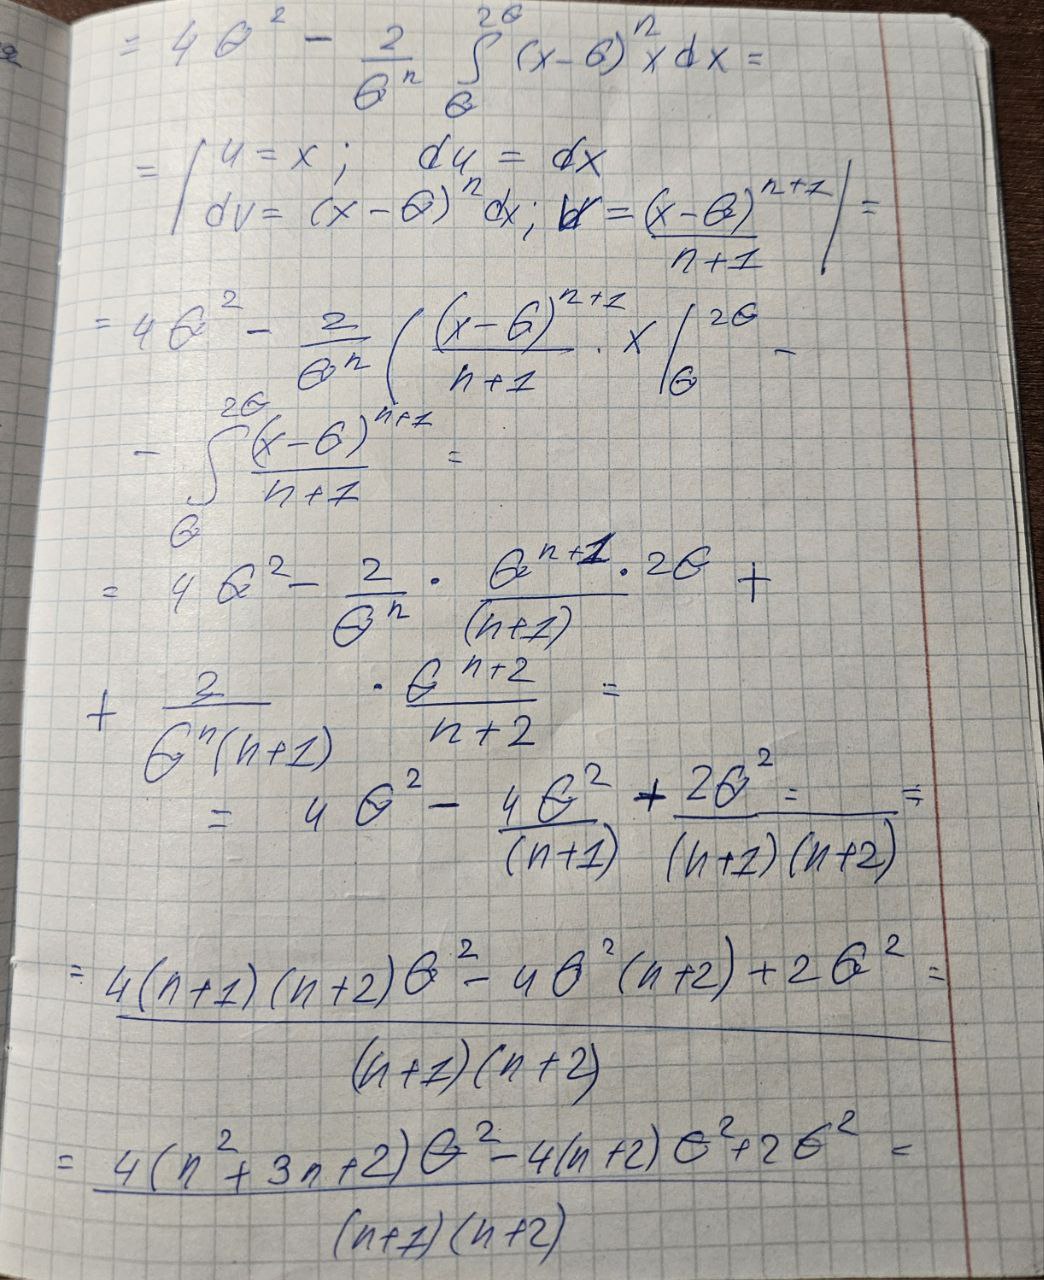 = 4θ² - 2/θⁿ ∫_θ^{2θ} (x-θ)ⁿ x dx =
= | u = x; du = dx
dv = (x-θ)ⁿ dx; v = (x-θ)ⁿ⁺¹/(n+1) | =
= 4θ² - 2/θⁿ ( (x-θ)ⁿ⁺¹/(n+1) · x |_θ^{2θ} -
- ∫_θ^{2θ} (x-θ)ⁿ⁺¹/(n+1) =
= 4θ² - 2/θⁿ · θⁿ⁺¹ · 2θ/(n+1) +
+ 2/(θⁿ(n+1)) · θⁿ⁺²/(n+2) =
= 4θ² - 4θ²/(n+1) + 2θ² =/((n+1)(n+2)) =
= (4(n+1)(n+2)θ² - 4θ²(n+2) + 2θ²)/((n+1)(n+2)) =
= (4(n²+3n+2)θ² - 4(n+2)θ² + 2θ²)/((n+1)(n+2)) =